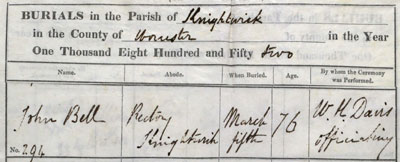 BURIALS in the Parish of Knightwick
in the County of Worcester in the Year
One Thousand Eight Hundred and Fifty two
Name. Abode. When Buried. Age. By whom the Ceremony was Performed.
John Bell Rectory March 76 W. H. Davis
Knightwick fifth officiating
No. 294